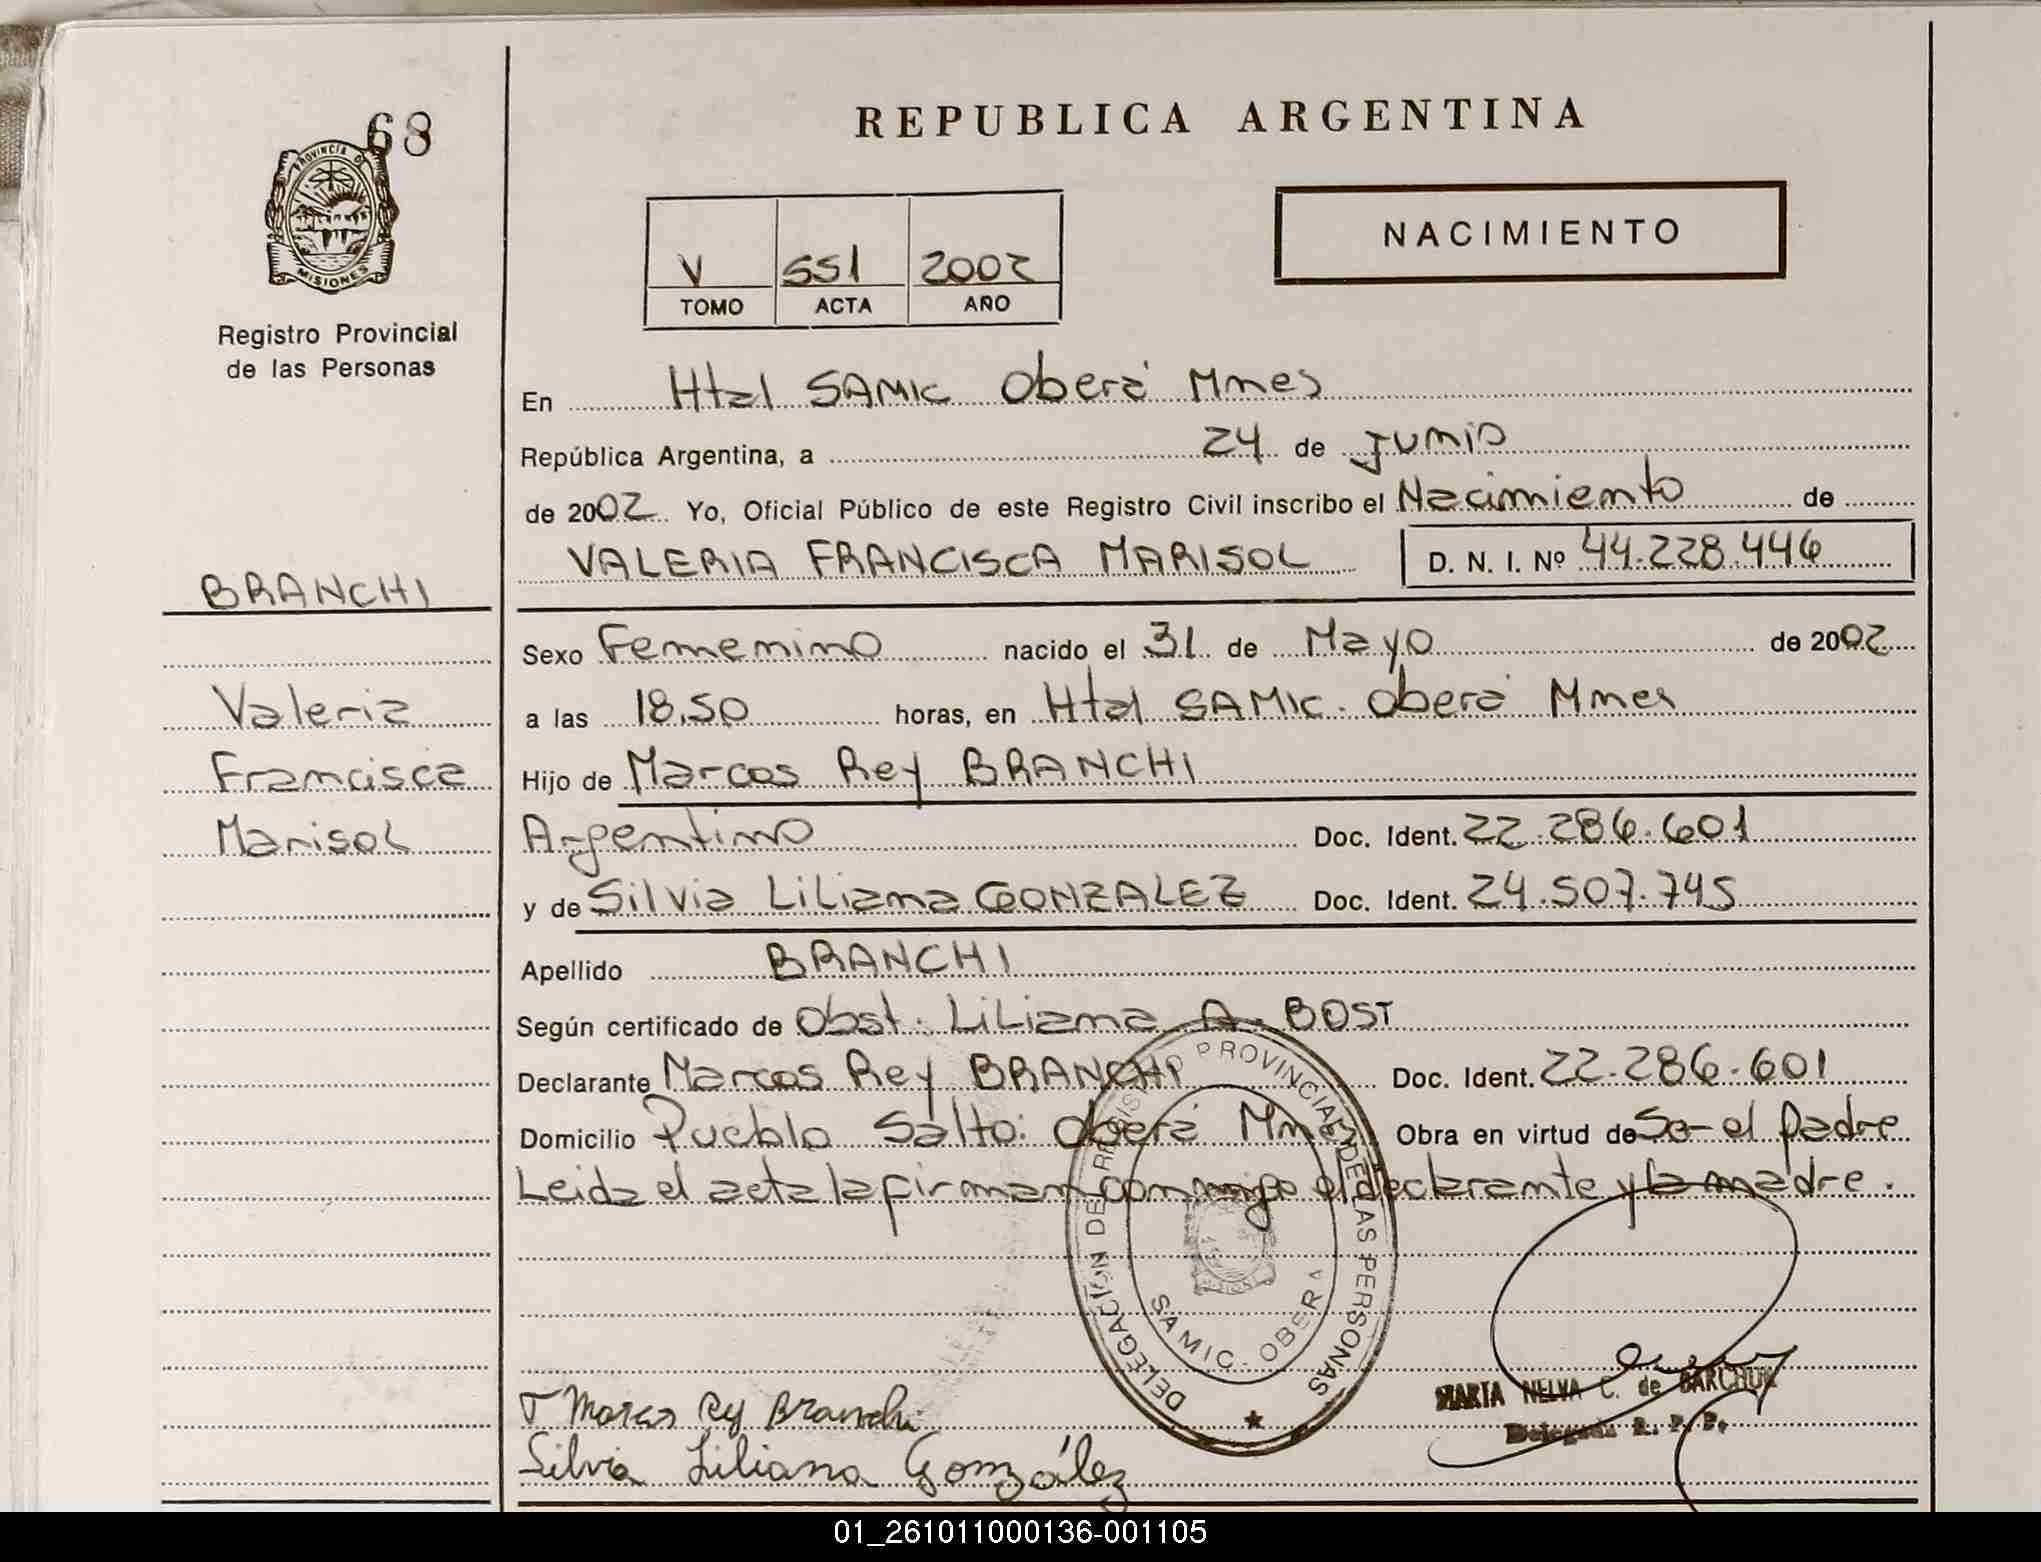 68
PROVINCIA DE
MISIONES
Registro Provincial
de las Personas
REPUBLICA ARGENTINA
NACIMIENTO
V 551 2002
TOMO ACTA AÑO
En Htal SAMIC Oberá Mnes
República Argentina, a 24 de Junio
de 2002 Yo, Oficial Público de este Registro Civil inscribo el Nacimiento de
VALERIA FRANCISCA MARISOL D. N. I. Nº 44.228.446
BRANCHI
Sexo Femenino nacido el 31 de Mayo de 2002
Valeria
a las 18,50 horas, en Htal SAMIC. Oberá Mnes
Francisca
Hijo de Marcos Rey BRANCHI
Marisol
Argentino Doc. Ident. 22.286.601
y de Silvia Liliana GONZALEZ Doc. Ident. 24.507.745
Apellido BRANCHI
Según certificado de Obst. Liliana A. BOST
Declarante Marcos Rey BRANCHI Doc. Ident. 22.286.601
Domicilio Pueblo Salto: Oberá Mnes Obra en virtud de So- el padre
Leida el acta la firman conmigo el declarante y la madre.
DELEGACIÓN DE REGISTRO PROVINCIAL DE LAS PERSONAS
SAMIC - OBERA
MARIA NELVA C. de
Delegada R. P. P.
Marcos Rey Branchi
Silvia Liliana González
01_261011000136-001105